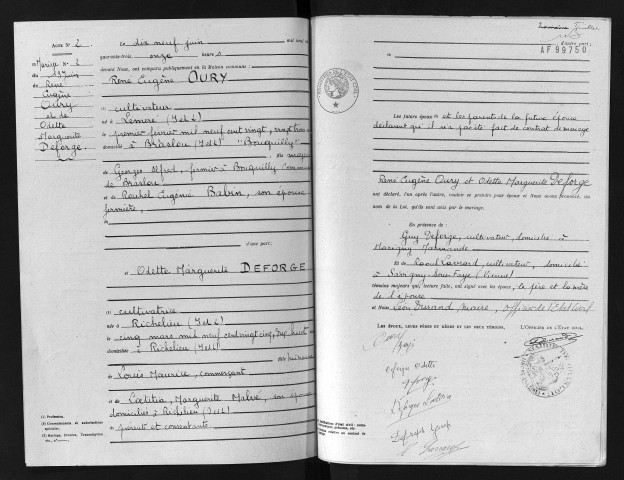 Acte N° 2
Mariage N° 2
du 19 Juin
de René
Eugène
Oury
et de
Odette
Marguerite
Deforge
Ce dix neuf juin mil neuf cent
quarante-trois onze heures
devant Nous, ont comparu publiquement en la Maison commune :
René Eugène OURY
(1) cultivateur
né à Lémeré (I et L)
le premier février mil neuf cent vingt, vingt trois ans
domicilié à Braslou (I et L) "Bouquilly"
fils majeur
de Georges Alfred, fermier à Bouquilly
de Braslou
et de Rachel Eugénie Babin, son épouse
fermière,
d'une part;
et Odette Marguerite DEFORGE
(1) cultivatrice
née à Richelieu (I et L)
le cinq mars mil neuf cent vingt cinq, dix huit
domiciliée à Richelieu (I et L)
fille mineure
de Louis Maurice, commerçant
et de Laetitia, Marguerite Malvé, son épouse
domiciliés à Richelieu (I et L)
présents et consentants
(1) Profession.
(2) Consentements et autorisations
spéciales.
d'autre part;
AF 99750
Les futurs époux et les parents de la future épouse
déclarent qu'il n'a pas été fait de contrat de mariage
René Eugène Oury et Odette Marguerite Deforge
ont déclaré, l'un après l'autre, vouloir se prendre pour époux et Nous avons prononcé, au
nom de la Loi, qu'ils sont unis par le mariage.
En présence de :
Guy Deforge, cultivateur, domicilié à
Marigny Marmande
Et de Raoul cultivateur, domicilié
à Savigny-sous-Faye (Vienne)
témoins majeurs qui, lecture faite, ont signé avec les époux, le père et la mère
de l'épouse
et Nous Léon Durand Maire, officier de l'Etat Civil
Les époux, leurs pères et mères et les deux témoins.
L'Officier de l'État civil
Oury
Deforge Odette
Deforge